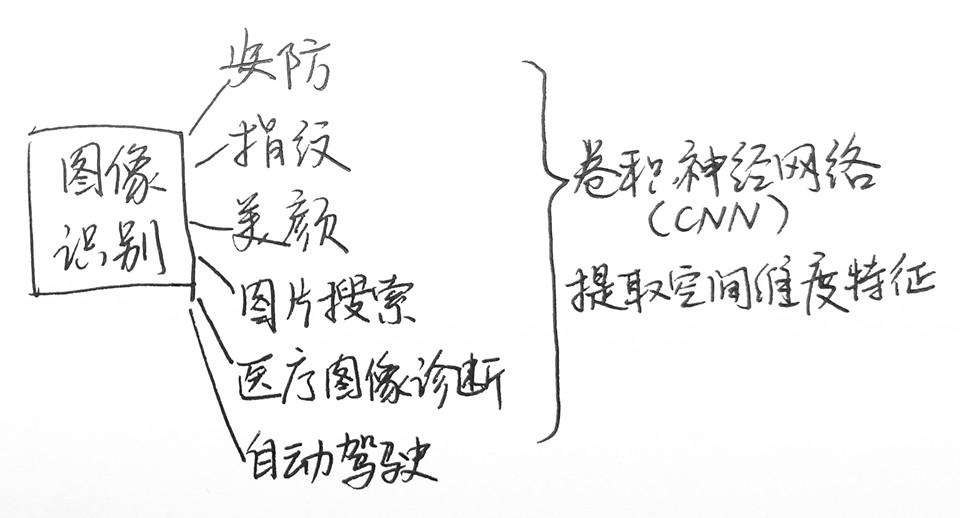 图像
识别
安防
指纹
美颜
图片搜索
医疗图像诊断
自动驾驶
卷积神经网络
(CNN)
提取空间维度特征